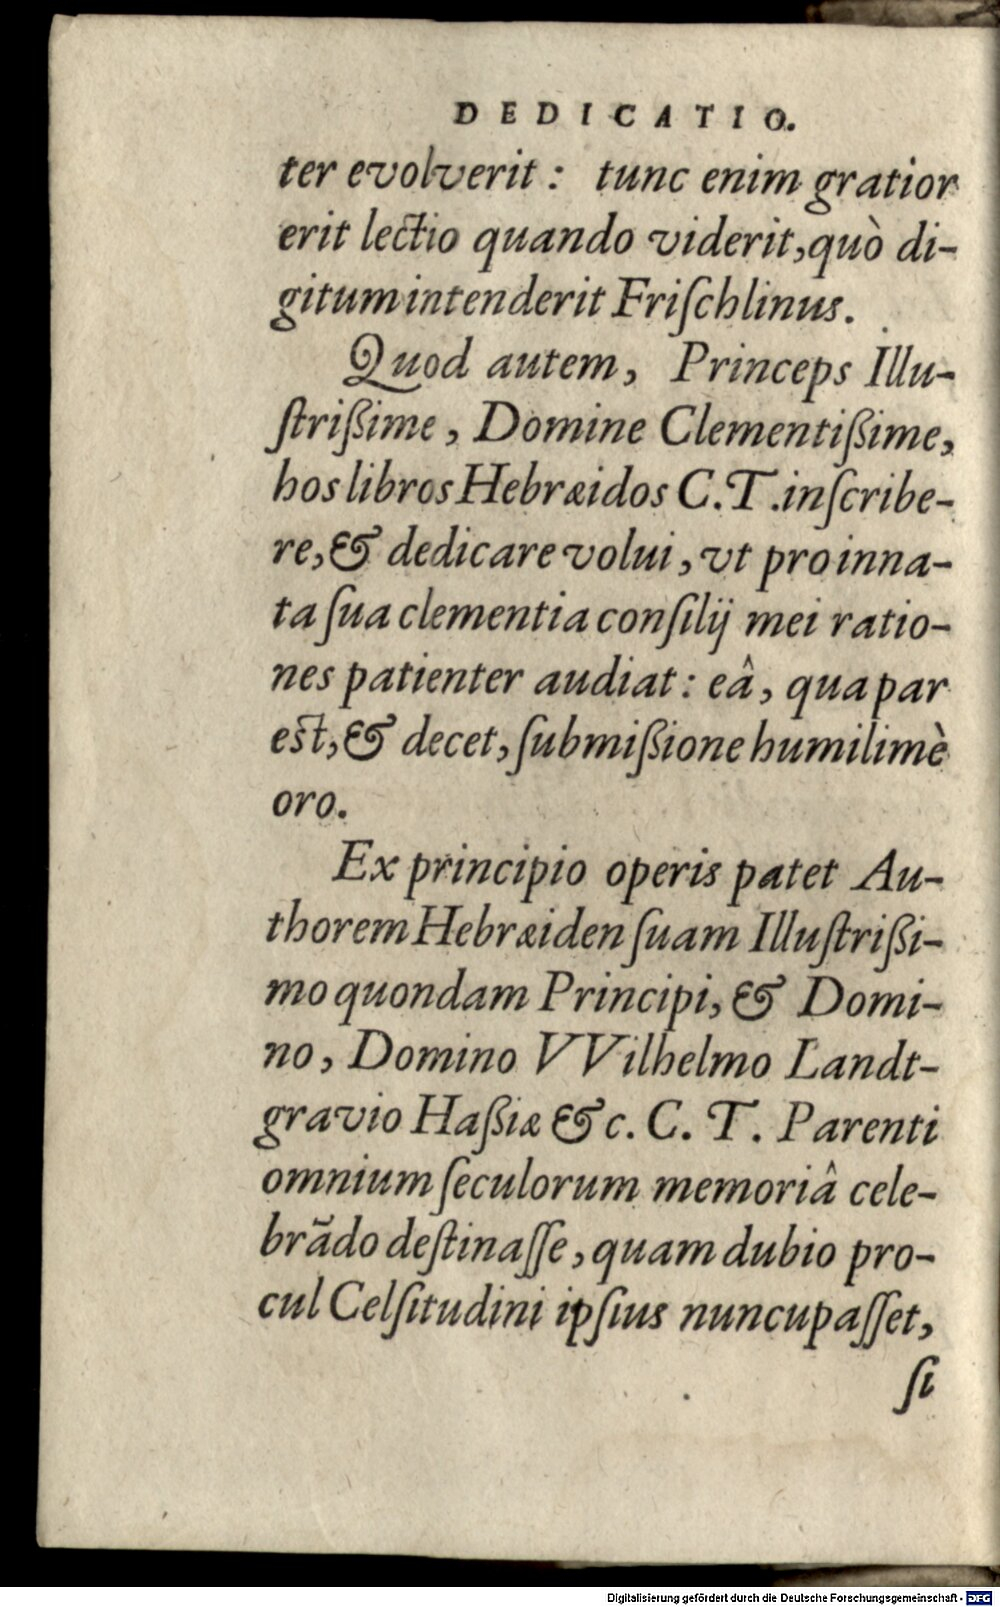 DEDICATIO.
ter evolverit: tunc enim gratior
erit lectio quando viderit, quò di-
gitum intenderit Friſchlinus.
Quod autem, Princeps Illu-
ſtrißime, Domine Clementißime,
hos libros Hebræidos C. T. inſcribe-
re, & dedicare volui, vt pro inna-
ta ſua clementia conſilij mei ratio-
nes patienter audiat: eâ, qua par
est, & decet, ſubmißione humilimè
oro.
Ex principio operis patet Au-
thorem Hebræiden ſuam Illuſtrißi-
mo quondam Principi, & Domi-
no, Domino VVilhelmo Landt-
gravio Haßiæ &c. C. T. Parenti
omnium ſeculorum memoriâ cele-
brãdo deſtinaſſe, quam dubio pro-
cul Celſitudini ipſius nuncupaſſet,
ſi
Digitalisierung gefördert durch die Deutsche Forschungsgemeinschaft - DFG